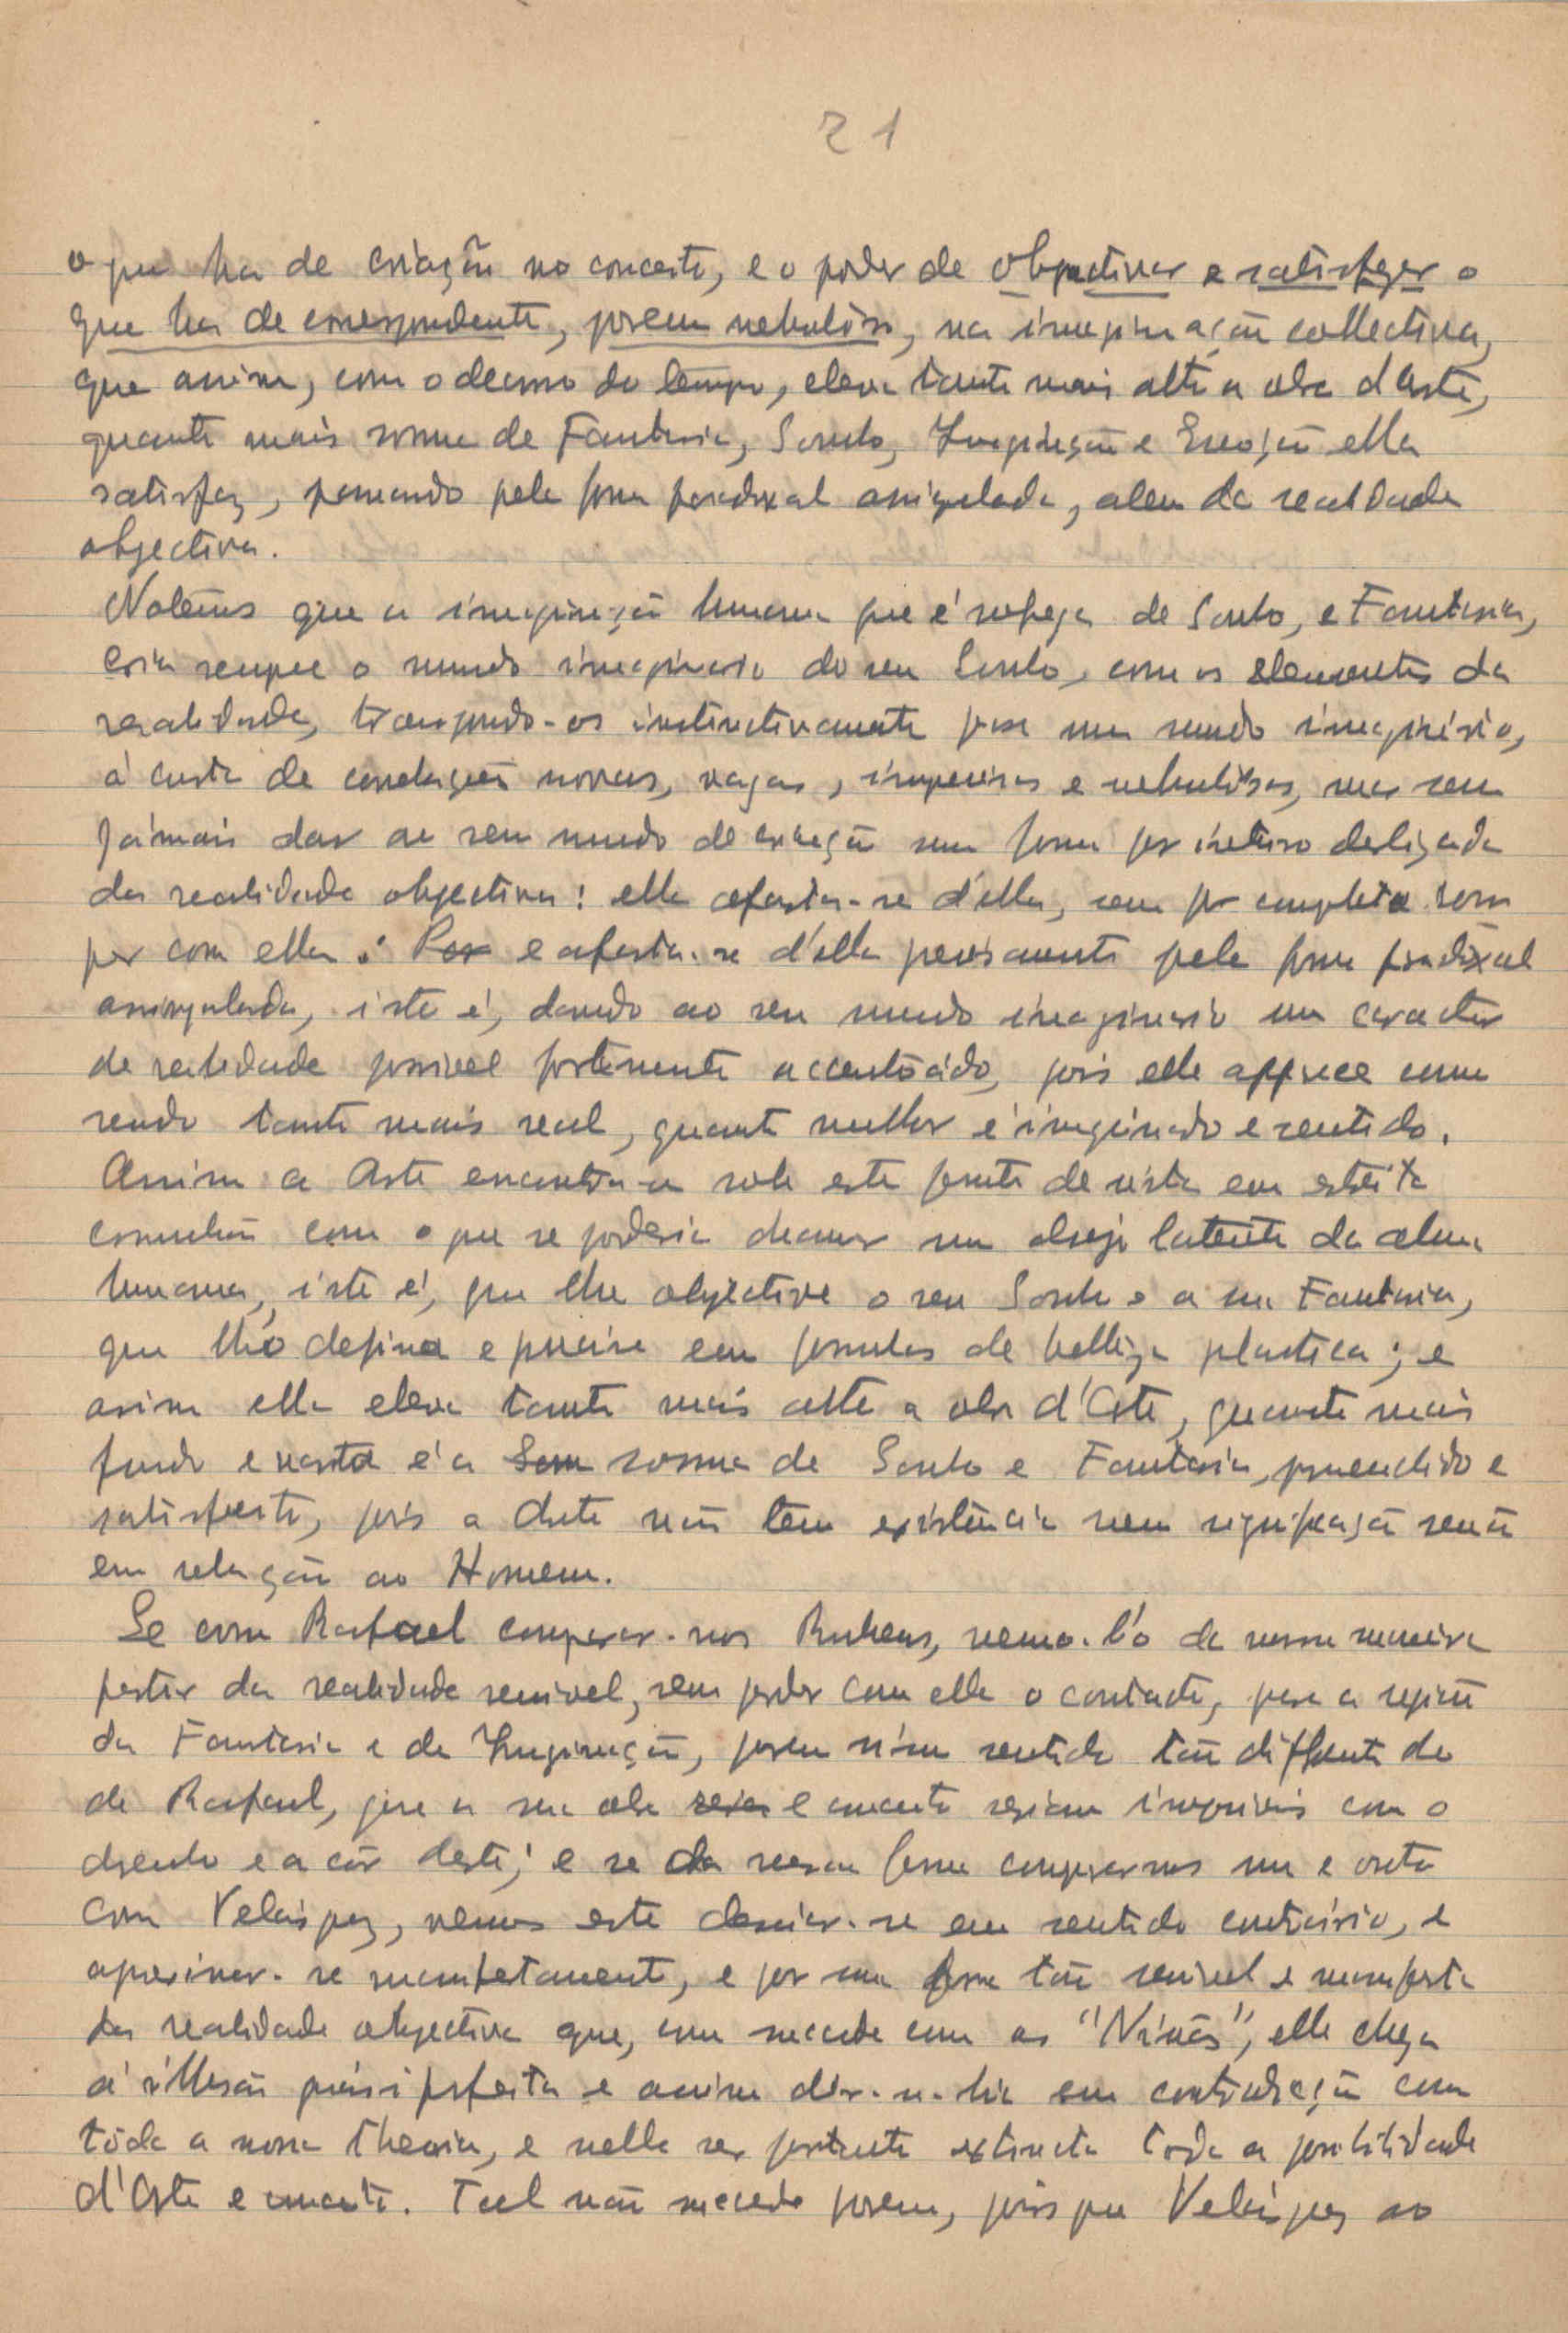 21
o que ha de criação no conceito, e o poder de objectivar e satisfazer o
que ha de correspondente, porem nebulôso, na imaginação collectiva,
que assim, com o decorrer do tempo, eleva tanto mais alto a obra d'Arte,
quanto mais somma de Fantasia, Sonho, Imaginação e Emoção ella
satisfaz, passando pela forma paradoxal assignalada, alem da realidade
objectiva.
Notêmos que a imaginação humana que é de Sonho, e Fantasia,
cria sempre o mundo imaginario do seu Sonho, com os elementos da
realidade, transpondo-os instinctivamente para um mundo imaginário,
á custa de correlações novas, vagas, imprecisas e nebulósas, mas sem
jámais dar ao seu mundo de criação uma forma por inteiro desligada
da realidade objectiva: ella afasta-se d'ella, sem por completo rom
per com ella: Por e afasta-se d'ella precisamente pela forma paradoxal
assignalada, isto é, dando ao seu mundo imaginario um caracter
de realidade possivel fortemente accentuádo, pois elle apparece como
sendo tanto mais real, quanto melhor é imaginado e sentido.
Assim a Arte encontra-se sob este ponto de vista em estreita
comunhão com o que se poderia chamar um desejo latente da alma
humana, isto é, que lhe objective o seu Sonho e a sua Fantasia,
que lh'o defina e precise em formulas de belleza plastica; e
assim ella eleva tanto mais alto a obra d'Arte, quanto mais
funda e vasta é a Som somma de Sonho e Fantasia, prehenchido e
satisfeito, pois a Arte não tem existência nem significação senão
em relação ao Homem.
Se com Rafael comparar-mos Rubens, vemo-l'o da mesma maneira
partir da realidade sensivel, sem perder com ella o contacto, para a região
da Fantasia e da Imaginação, porem n'um sentido tão differente do
de Rafael, que a sua obra seria e encanto seriam impossiveis com o
desenho e a côr deste; e se da mesma forma compararmos um e outro
com Velásquez, vemos este desviar-se em sentido contrário, e
aproximar-se manifestamente, e por uma forma tão sensivel e manifesta
da realidade objectiva que, como succede com as "Ninãs", elle chega
á illusão quási perfeita e assim dir-se-hia em contradicção com
tôda a nossa theoria, e nella ser portanto extincta toda a possibilidade
d'Arte e encanto. Tal não succede porem, pois que Velásquez ao